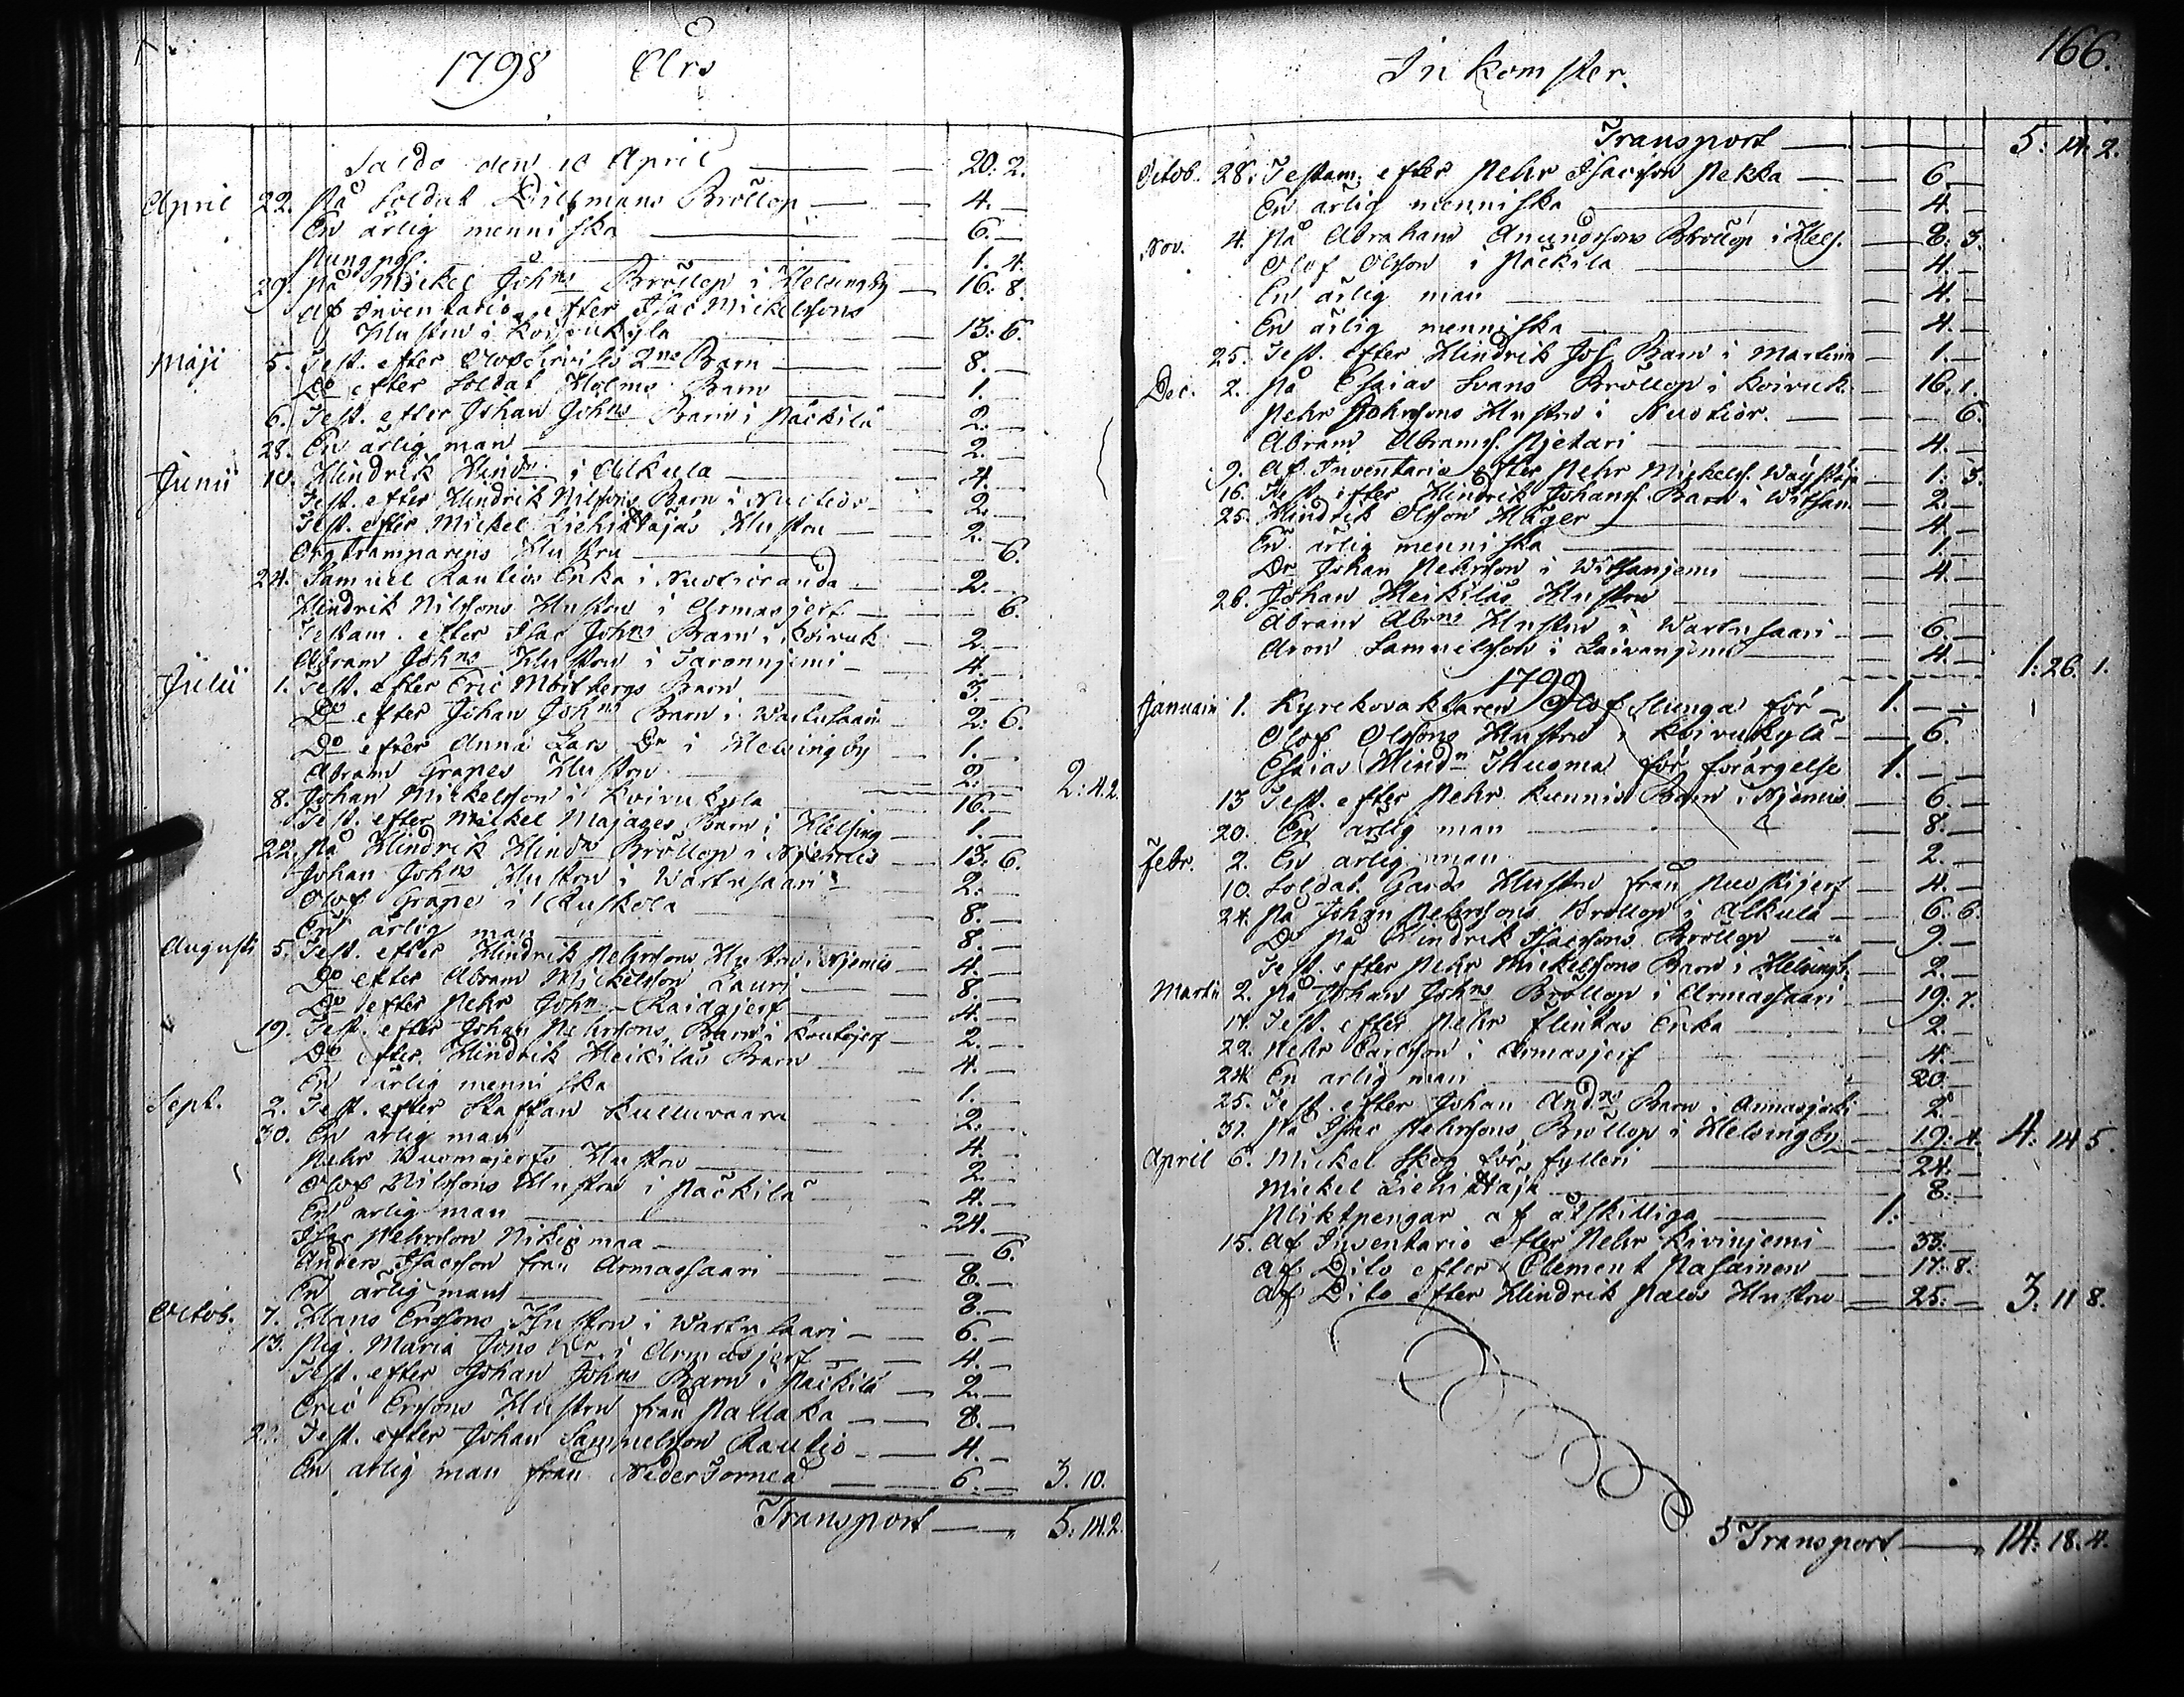 1798 Års
Saldo den 16 April — 20. 2.
April 22. På Soldat Dillmans Bröllop — 4. —
En ärlig menniska — 6. —
Pungpg. — 1. 4.
29. På Mickel Johns Bröllop i Helsingby — 16. 8.
Af Inventario efter Isac Mickelssons
Hustru i Koivukyla — 13. 6.
Maji 5. Test. efter Barn — 8. —
Do efter Soldat Holms Barn — 1. —
6. Test. efter Johan Johns Barn i Päckilä — 2. —
28. En ärlig man — 2. —
Junii 10. Hindrik Hindr. i Alkula — 4. —
Test. efter Hindrik Nilssons Barn i Nuotior — 2. —
Test. efter Mickel Liehittäjäs Hustru — 2. —
Orgtramparens Hustru — 6.
24. Samuel Rautios Enka i Nuotioranda — 2. —
Hindrik Nilssons Hustru i Armasjerf — 6.
Testam. efter Isac Johns Barn i Koivuk. — 2. —
Abram Johns Hustru i Taronnjemi — 4. —
Julii 1. Test. efter Eric Mörtbergs Barn — 3 —
Do efter Johan Johns Barn i Wartusaari — 2. 6.
Do efter Anna Lars Dr i Helsingby — 1. —
Abram Grapes Hustru — 2. — 2: 4. 2.
8. Johan Mickelsson i Koivukyla — 16. —
Test. efter Mickel Majages Barn i Helsing — 1. —
22. På Hindrik Hindrs Bröllop i Njemis — 13. 6.
Johan Johns Hustru i Wartusaari — 2. —
Olof Grape i Ruskola — 8. —
En ärlig man — 8. —
Augusti 5. Test. efter Hindrik Pehrssons Hustru i Njemis — 4. —
Do efter Abram Mickelsson Lauri — 8. —
Do efter Pehr Johns Raidajerf — 4. —
19. Test. efter Johan Pehrssons Barn i — 2. —
Do efter Hindrik Heikiläs Barn — 4. —
En ärlig menniska — 1. —
Sept. 2. Test. efter Staffan Kulluvaara — 2. —
30. En ärlig man — 4. —
Pehr Vuomajerfs Hustru — 2. —
Olof Nilssons Hustru i Päckilä — 4. —
En ärlig man — 24. —
Isac Pehrsson Nikigmaa — 6.
Anders Isacsson från Armassaari — 8. —
En ärlig man — 8. —
Octob. 7. Hans Erssons Hustru i Wartusaari — 6. —
13. Pig. Maria Jöns Dr i Armasjerf — 4. —
Test. efter Johan Johns Barn i Päckilä — 2. —
Eric Ersons Hustru från Pallaka — 8. —
Test. efter Johan Samuelsson Rautio — 4. —
En ärlig man från Neder Torneå — 6. — 3. 10.
Transport — 5: 14. 2.
Inkomster. 166.
Transport — 5: 14. 2.
Octob. 28. Testam. efter Pehr Isacsson Pekka — 6. —
En ärlig menniska — 4. —
Nov. 4. På Abraham Anundssons Bröllop i Hels. — 8. 3.
Olof Olsson i Päckila — 4. —
En ärlig man — 4. —
En ärlig menniska — 4. —
25. Test. efter Hindrik Joh. Barn i — 1. —
Dec. 2. På Esaias Svans Bröllop i Koivuk. — 16. 1.
Pehr Johnsons Hustru i Nuotior. — 6.
Abram Abrams. Pjetari — 4. —
9. Af Inventario efter Pehr Mickels. — 1. 3.
16. Test. efter Hindrik Johans. Barn i Witsan. — 2. —
25. Hindrik Olsson Häger — 4. —
En ärlig menniska — 1. —
Dr Johan Pehrsson i Witsanjemi — 4. —
26. Johan Heikiläs Hustru —
Abram Abrns Hustru i Wartusaari — 6. —
Aron Samuelsson i Laivanjemi — 4. — 1: 26. 1.
1799
Januarii 1. Kyrckovaktaren Olof Slunga för — 1. —
Olof Olssons Hustru i Koivukylä — 6.
Esaias Hindr Thuoma för förargelse 1. —
13 Test. efter Pehr Kunnis Barn i Njemis — 6. —
20. En ärlig man — 8. —
Febr. 2. En ärlig man — 2. —
10. Soldat Gards Hustru från — 4. —
24. På Johan Pehrssons Bröllop i Alkula — 6. 6.
Do på Hindrik Isacssons Bröllop — 9. —
Test. efter Pehr Mickelssons Barn i Helsingb. — 2. —
Martii 2. På Johan Johns Bröllop i Armassaari — 19. 7.
17. Test. efter Pehr Flinkas Enka — 2. —
22. Pehr Carlsson i Armasjerf — 4. —
24 En ärlig man — 20. —
25. Test. efter Johan Andrs Barn i Armasjerfi — 2. —
31. På Isac Pehrssons Bröllop i Helsingby — 19. 4. 4. 14 5.
April 6. Mickel Skog för fylleri — 24. —
Mickel Liehittäjä — 8. —
Pliktpengar af åtskilliga — 1.
15. Af Inventario efter Pehr Kivinjemi — 33. —
Af Dito efter Clement Pasainen — 17. 8.
Af Dito efter Hindrik Palos Hustru — 25. — 3: 11 8.
Transport — 14. 18. 4.